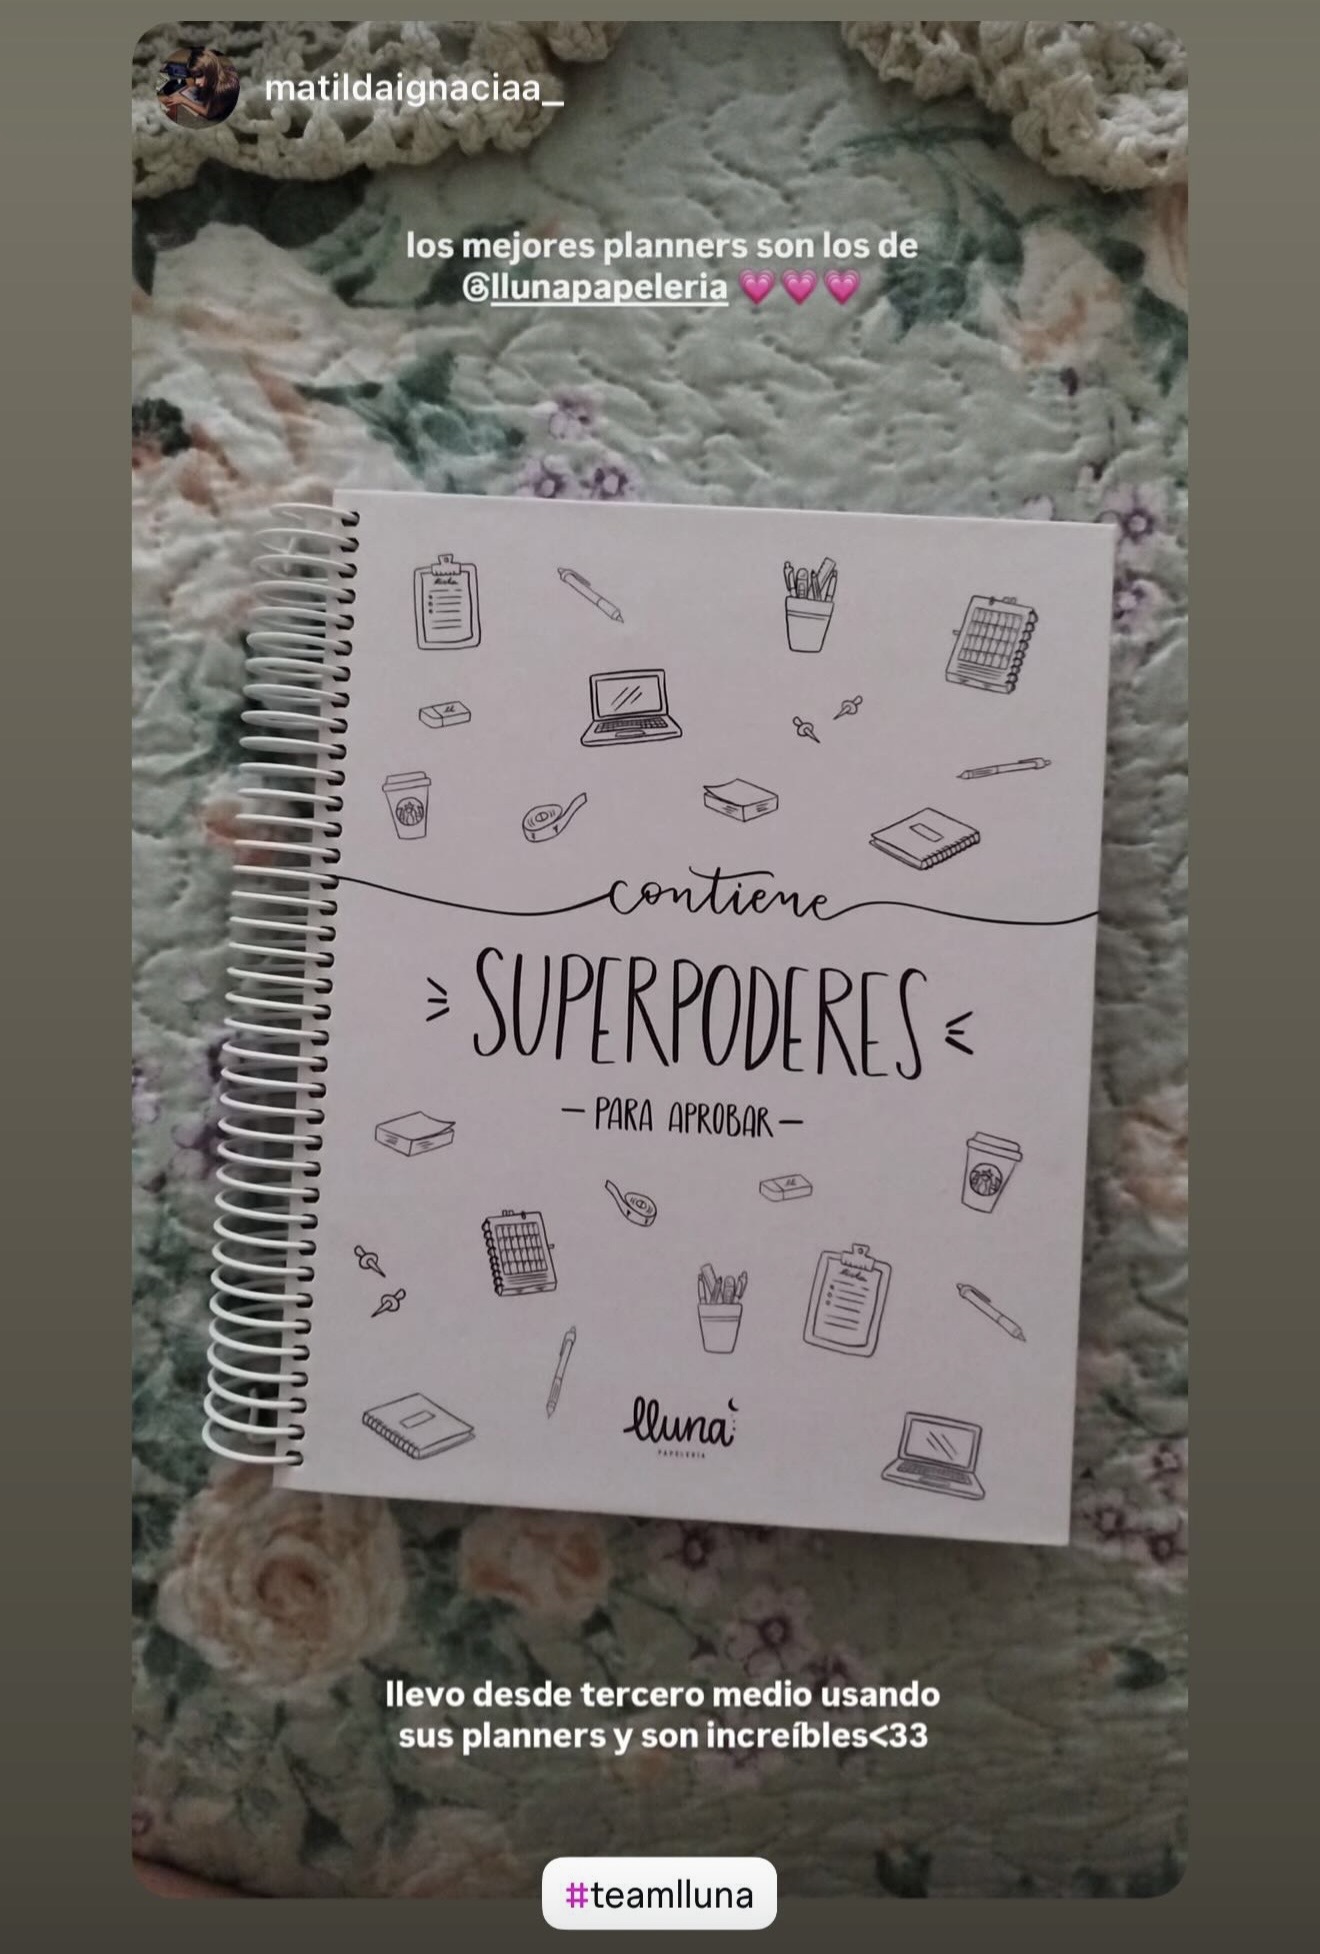 matildaignaciaa_
los mejores planners son los de
@llunapapeleria 💗💗💗
contiene
SUPERPODERES
- PARA APROBAR -
lluna
PAPELERÍA
llevo desde tercero medio usando
sus planners y son increíbles<33
#teamlluna